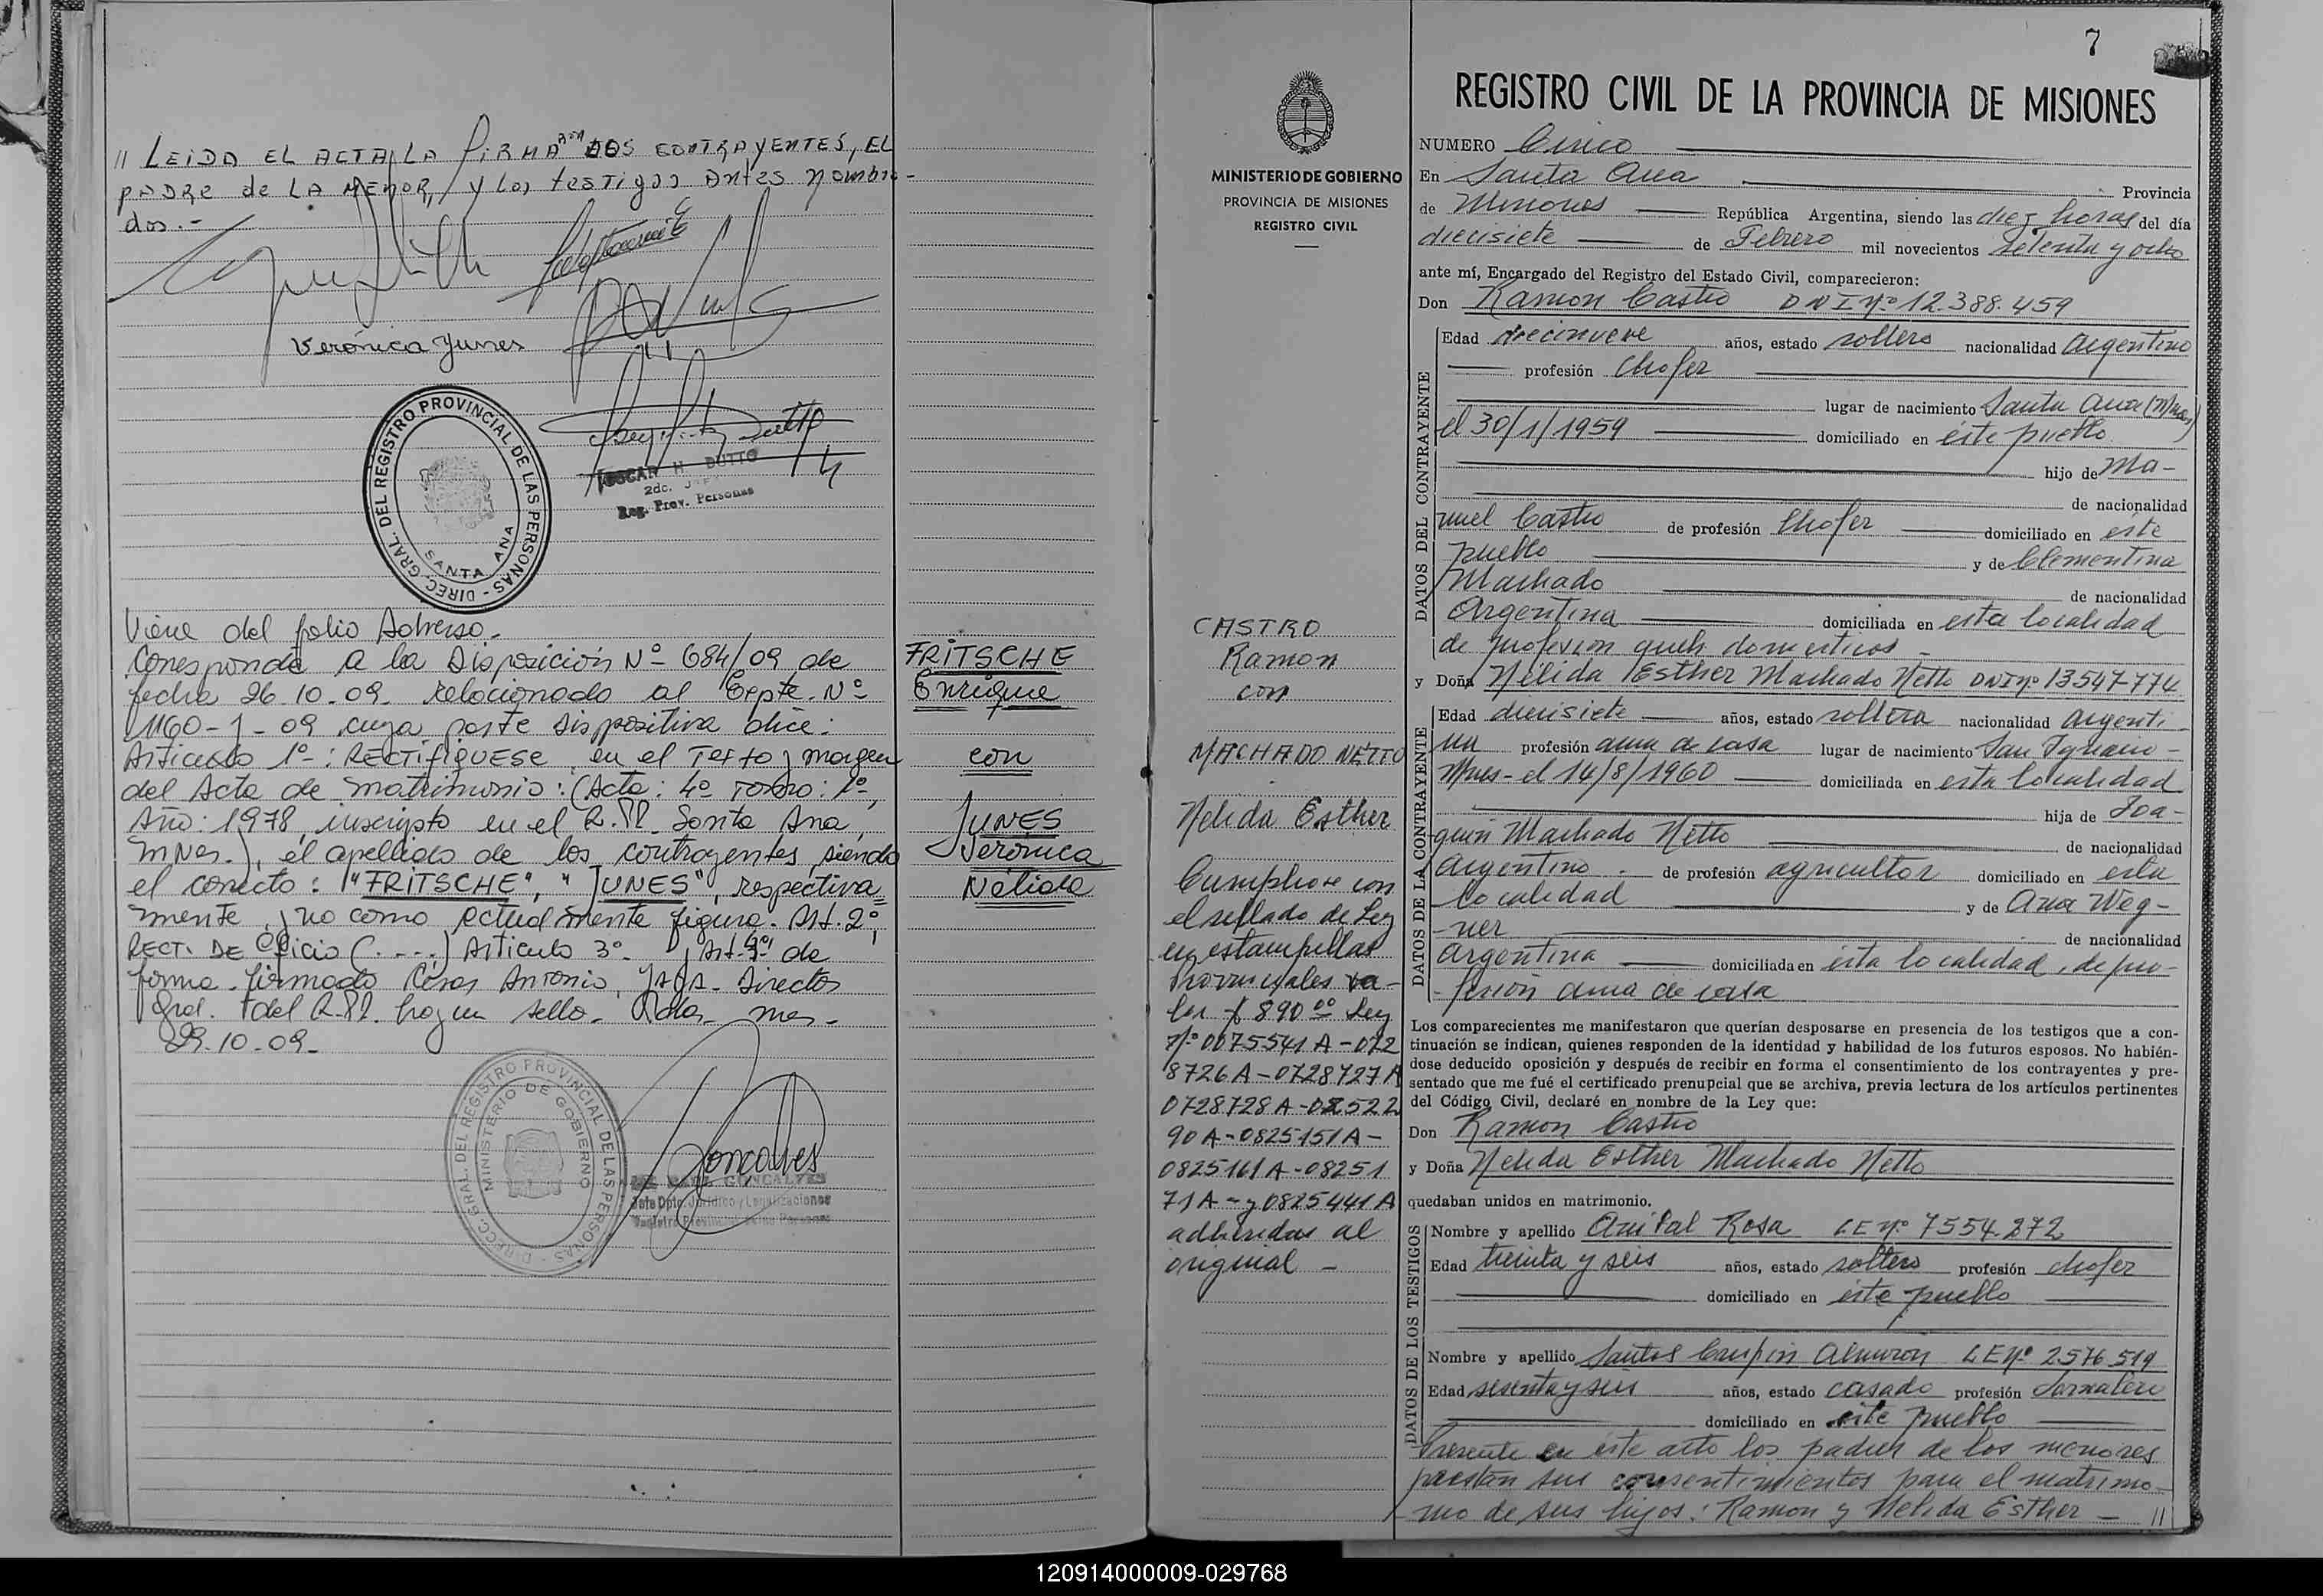 // LEIDA EL ACTA, LA FIRMAron LOS CONTRAYENTES, EL
PADRE de LA MENOR, y los testigos antes nombra-
dos.-
Verónica Junes
DIREC. GRAL. DEL REGISTRO PROVINCIAL DE LAS PERSONAS -
SANTA ANA
OSCAR H. DUTTO
2do. JEFE
Reg. Prov. Personas
Viene del folio Adverso.
Corresponde a la Disposición Nº 684/09 de
fecha 26.10.09. relacionado al Expte. Nº
1160-J-09 cuya parte dispositiva dice:
Artículo 1º: RECTIFIQUESE en el Texto y margen
del Acta de matrimonio: (Acta: 4º Tomo: 1º,
Año: 1978, inscripto en el R.P.P. Santa Ana,
Mnes.), el apellido de los contrayentes, siendo
el correcto: "FRITSCHE", "JUNES", respectiva=
mente, y no como actualmente figura. Art. 2º,
RECT. DE Oficio (....) Artículo 3º. y Art. 4º de
forma. Firmado César Antonio, Director
Gral. del R.P.P. hay un sello. Mnes.
29.10.09.
FRITSCHE
Enrique
con
JUNES
Verónica
Nélida
DIREC. GRAL. DEL REGISTRO PROVINCIAL DE LAS PERSONAS -
MINISTERIO DE GOBIERNO
Goncalves
RAUL GONCALVES
Jefe Dpto. Jurídico y Legalizaciones
Registro Provincial de las Personas
7
MINISTERIO DE GOBIERNO
PROVINCIA DE MISIONES
REGISTRO CIVIL
CASTRO
Ramon
con
MACHADO NETTO
Nelida Esther
Cumpliose con
el sellado de Ley
en estampillas
Provinciales va-
lor $ 890.00 Ley
Nº 0075541 A-072
8726 A-0728727 A
0728728 A-08522
90 A-0825151 A-
0825161 A-08251
71 A-y 0825441 A
adheridas al
original -
REGISTRO CIVIL DE LA PROVINCIA DE MISIONES
NUMERO Cinco
En Santa Ana Provincia
de Misiones República Argentina, siendo las diez horas del día
diecisiete de Febrero mil novecientos setenta y ocho
ante mí, Encargado del Registro del Estado Civil, comparecieron:
Don Ramon Castro DNI Nº 12.388.459
DATOS DEL CONTRAYENTE
Edad diecinueve años, estado soltero nacionalidad argentino
profesión Chofer
lugar de nacimiento Santa Ana (Mnes)
el 30/1/1959 domiciliado en este pueblo
hijo de Ma-
de nacionalidad
nuel Castro de profesión Chofer domiciliado en este
pueblo y de Clementina
Machado de nacionalidad
Argentina domiciliada en esta localidad
de profesion queh. domesticos -
y Doña Nélida Esther Machado Netto DNI Nº 13547.774
DATOS DE LA CONTRAYENTE
Edad diecisiete años, estado soltera nacionalidad argenti
na profesión ama de casa lugar de nacimiento San Ignacio -
Mnes - el 14/8/1960 domiciliada en esta localidad
hija de Joa-
quin Machado Netto de nacionalidad
argentino - de profesión agricultor domiciliado en esta
localidad y de Ana Weg-
-ner de nacionalidad
argentina domiciliada en esta localidad, de pro-
-fesión ama de casa
Los comparecientes me manifestaron que querían desposarse en presencia de los testigos que a con-
tinuación se indican, quienes responden de la identidad y habilidad de los futuros esposos. No habién-
dose deducido oposición y después de recibir en forma el consentimiento de los contrayentes y pre-
sentado que me fué el certificado prenupcial que se archiva, previa lectura de los artículos pertinentes
del Código Civil, declaré en nombre de la Ley que:
Don Ramon Castro
y Doña Nelida Esther Machado Netto
quedaban unidos en matrimonio.
DATOS DE LOS TESTIGOS
Nombre y apellido Anibal Rosa LE Nº 7554.272
Edad treinta y seis años, estado soltero profesión chofer
domiciliado en este pueblo
Nombre y apellido Santos Crispin Almiron LE Nº 2576519
Edad sesenta y seis años, estado casado profesión Jornalero
domiciliado en este pueblo
Presente en este acto los padres de los menores
prestan sus consentimientos para el matrimo-
nio de sus hijos: Ramon y Nelida Esther - //
120914000009-029768